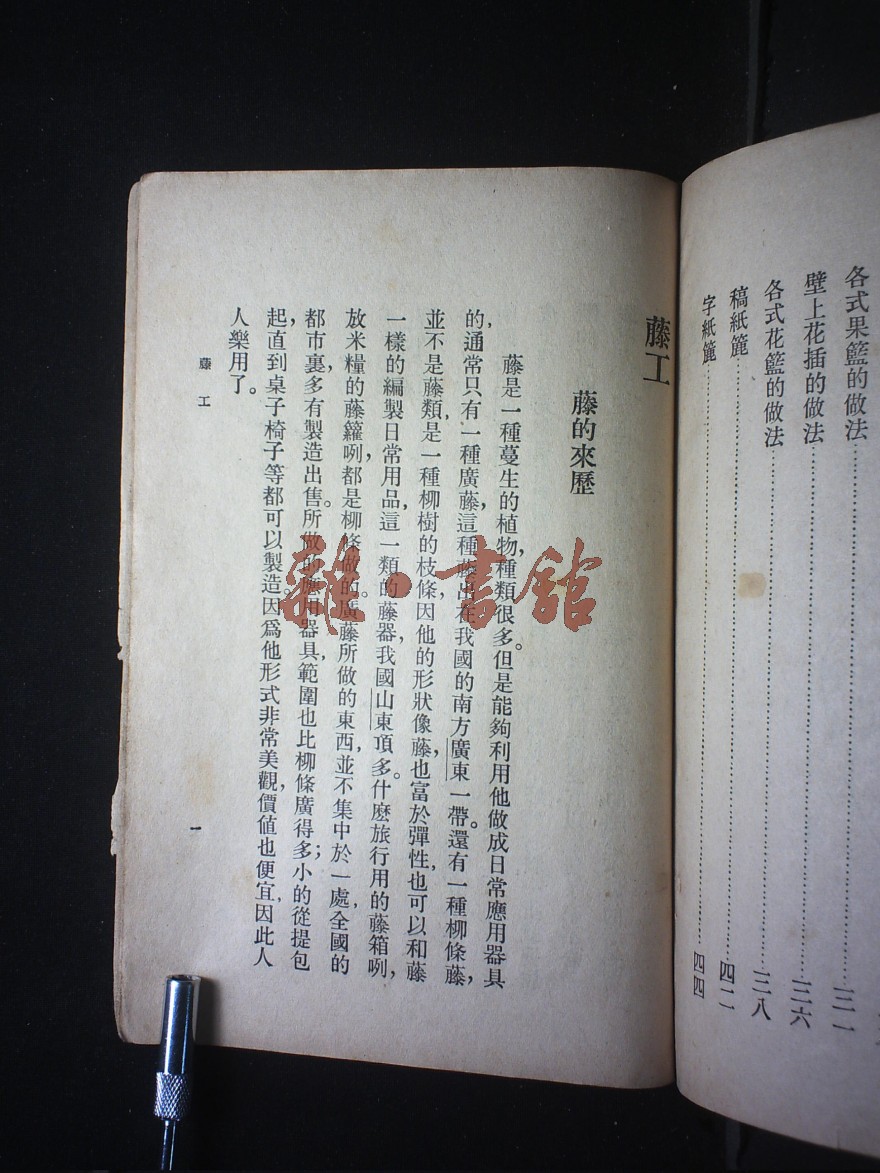 各式果籃的做法……三一
壁上花插的做法……三六
各式花籃的做法……三八
稿紙簏……四二
字紙簏……四四
藤工
藤的來歷
藤是一種蔓生的植物，種類很多。但是能夠利用他做成日常應用器具
的，通常只有一種廣藤，這種藤出在我國的南方廣東一帶。還有一種柳條藤，
並不是藤類，是一種柳樹的枝條，因他的形狀像藤，也富於彈性，也可以和藤
一樣的編製日常用品，這一類的藤器，我國山東頂多。什麽旅行用的藤箱咧，
放米糧的藤籮咧，都是柳條做的。廣藤所做的東西，並不集中於一處，全國的
都市裏，多有製造出售。所做的應用器具，範圍也比柳條廣得多；小的從提包
起，直到桌子椅子等都可以製造。因爲他形式非常美觀，價值也便宜，因此人
人樂用了。
藤工
一
雜·書館